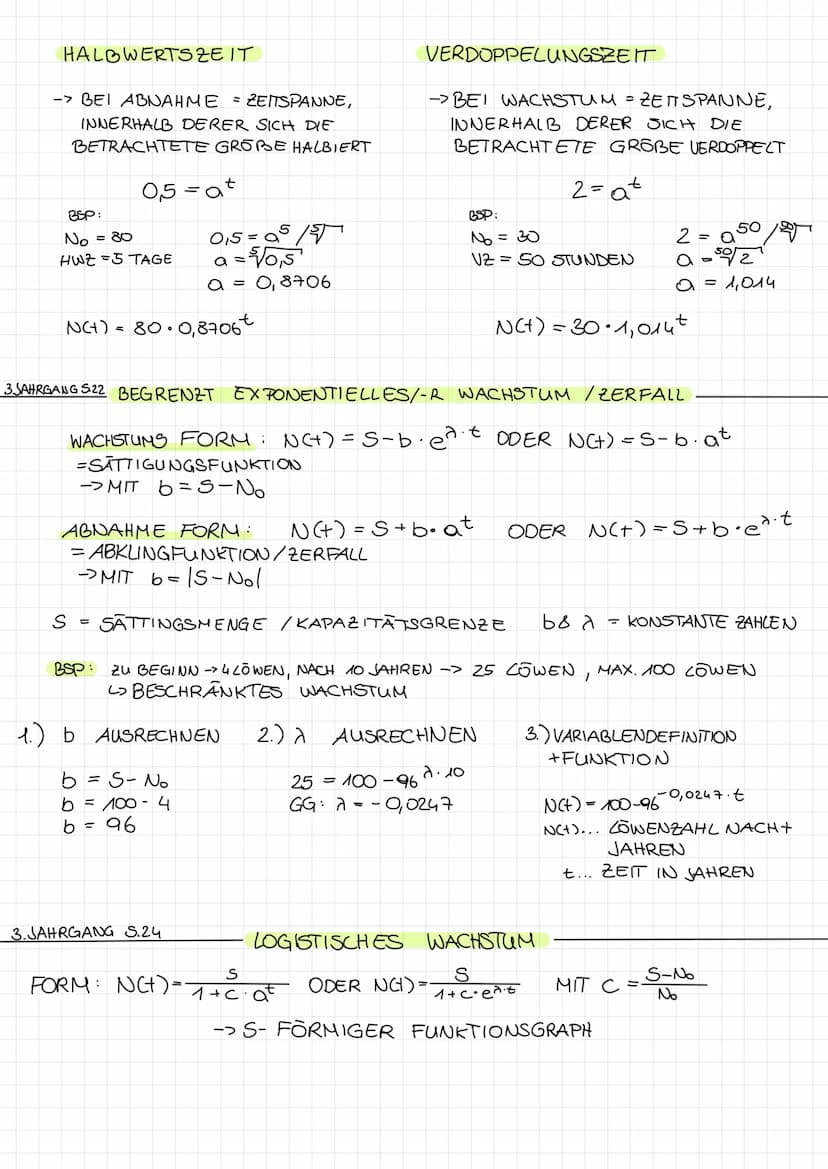 HALBWERTSZEIT
-> BEI ABNAHME = ZEITSPANNE,
INNERHALB DERER SICH DIE
BETRACHTETE GRÖßE HALBIERT
0,5 = a^t
BSP:
N₀ = 80
HWZ = 5 TAGE
0,5 = a^5 /⁵√
a = ⁵√0,5
a = 0,8706
N(t) = 80 · 0,8706^t
VERDOPPELUNGSZEIT
-> BEI WACHSTUM = ZEITSPANNE,
INNERHALB DERER SICH DIE
BETRACHTETE GRÖßE VERDOPPELT
2 = a^t
BSP:
N₀ = 30
VZ = 50 STUNDEN
2 = a^50 /⁵⁰√
a = ⁵⁰√2
a = 1,014
N(t) = 30 · 1,014^t
3.JAHRGANG S22 BEGRENZT EXPONENTIELLES/-R WACHSTUM / ZERFALL
WACHSTUMS FORM: N(t) = S-b · e^λ·t ODER N(t) = S-b · a^t
=SÄTTIGUNGSFUNKTION
-> MIT b = S-N₀
ABNAHME FORM: N(t) = S+b · a^t ODER N(t) = S+b · e^λ·t
= ABKLINGFUNKTION/ZERFALL
-> MIT b = |S-N₀|
S = SÄTTINGSMENGE / KAPAZITÄTSGRENZE b & λ = KONSTANTE ZAHLEN
BSP: ZU BEGINN -> 4 LÖWEN, NACH 10 JAHREN -> 25 LÖWEN, MAX. 100 LÖWEN
↳ BESCHRÄNKTES WACHSTUM
1.) b AUSRECHNEN
b = S-N₀
b = 100-4
b = 96
2.) λ AUSRECHNEN
25 = 100-96^λ·10
GG: λ = -0,0247
3.) VARIABLENDEFINITION
+FUNKTION
N(t) = 100-96^-0,0247·t
N(t)... LÖWENZAHL NACH t
JAHREN
t... ZEIT IN JAHREN
3. JAHRGANG S.24
LOGISTISCHES WACHSTUM
FORM: N(t) = S/(1+c·a^t) ODER N(t) = S/(1+c·e^λ·t) MIT C = (S-N₀)/N₀
-> S-FÖRMIGER FUNKTIONSGRAPH